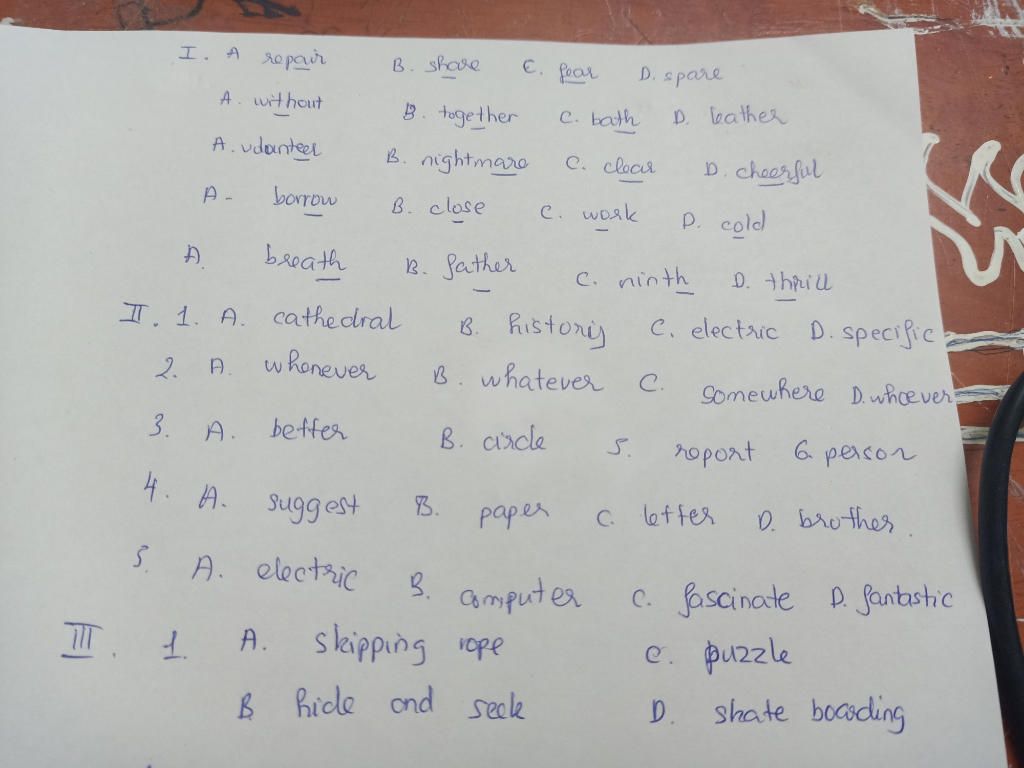 I. A repair B. share C. fear D. spare
A. without B. together C. bath D. leather
A. volunteer B. nightmare C. clear D. cheerful
A- borrow B. close C. work D. cold
A. breath B. father C. ninth D. thrill
II. 1. A. cathedral B. history C. electric D. specific
2. A. whenever B. whatever C. somewhere D. whoever
3. A. better B. circle 5. report 6. person
4. A. suggest B. paper C. letter D. brother.
5. A. electric B. computer C. fascinate D. fantastic
III. 1. A. skipping rope C. puzzle
B hide and seek D. skate boarding